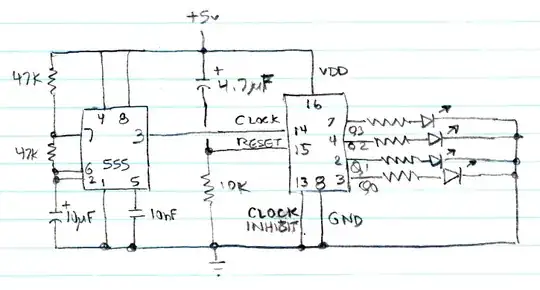 +5v
47K
+
4.7µF
VDD
4 8
16
7 3
CLOCK
14
7
Q3
47K
RESET
15
4
Q2
6
555
2
Q1
2 1 5
10K
13 8 3
Q0
+
10µF
10nF
CLOCK
INHIBIT
GND